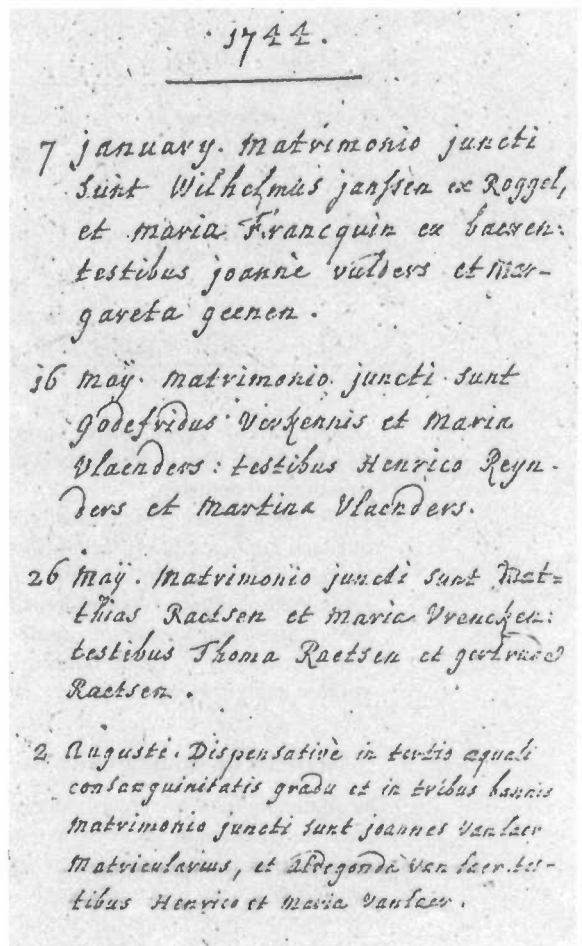 1744.
7 january. Matrimonio juncti
sunt Wilhelmus janssen ex Roggel,
et maria Francquin ex baexen:
testibus joannè vulders et Mar-
gareta geenen.
16 maÿ. matrimonio juncti sunt
godefridus Verkennis et Maria
Vlaenders: testibus Henrico Reyn-
ders et Martina Vlaenders.
26 maÿ. Matrimonio juncti sunt Mat=
thias Raetsen et Maria Vrencken:
testibus Thoma Raetsen et gertrude
Raetsen.
2 Augusti. Dispensativè in tertio æquali
consanguinitatis gradu et in tribus bannis
Matrimonio juncti sunt joannes Vanlaer
Matricularius, et Aldegonda Van laer. tes-
tibus Henrico et Maria Vanlaer.